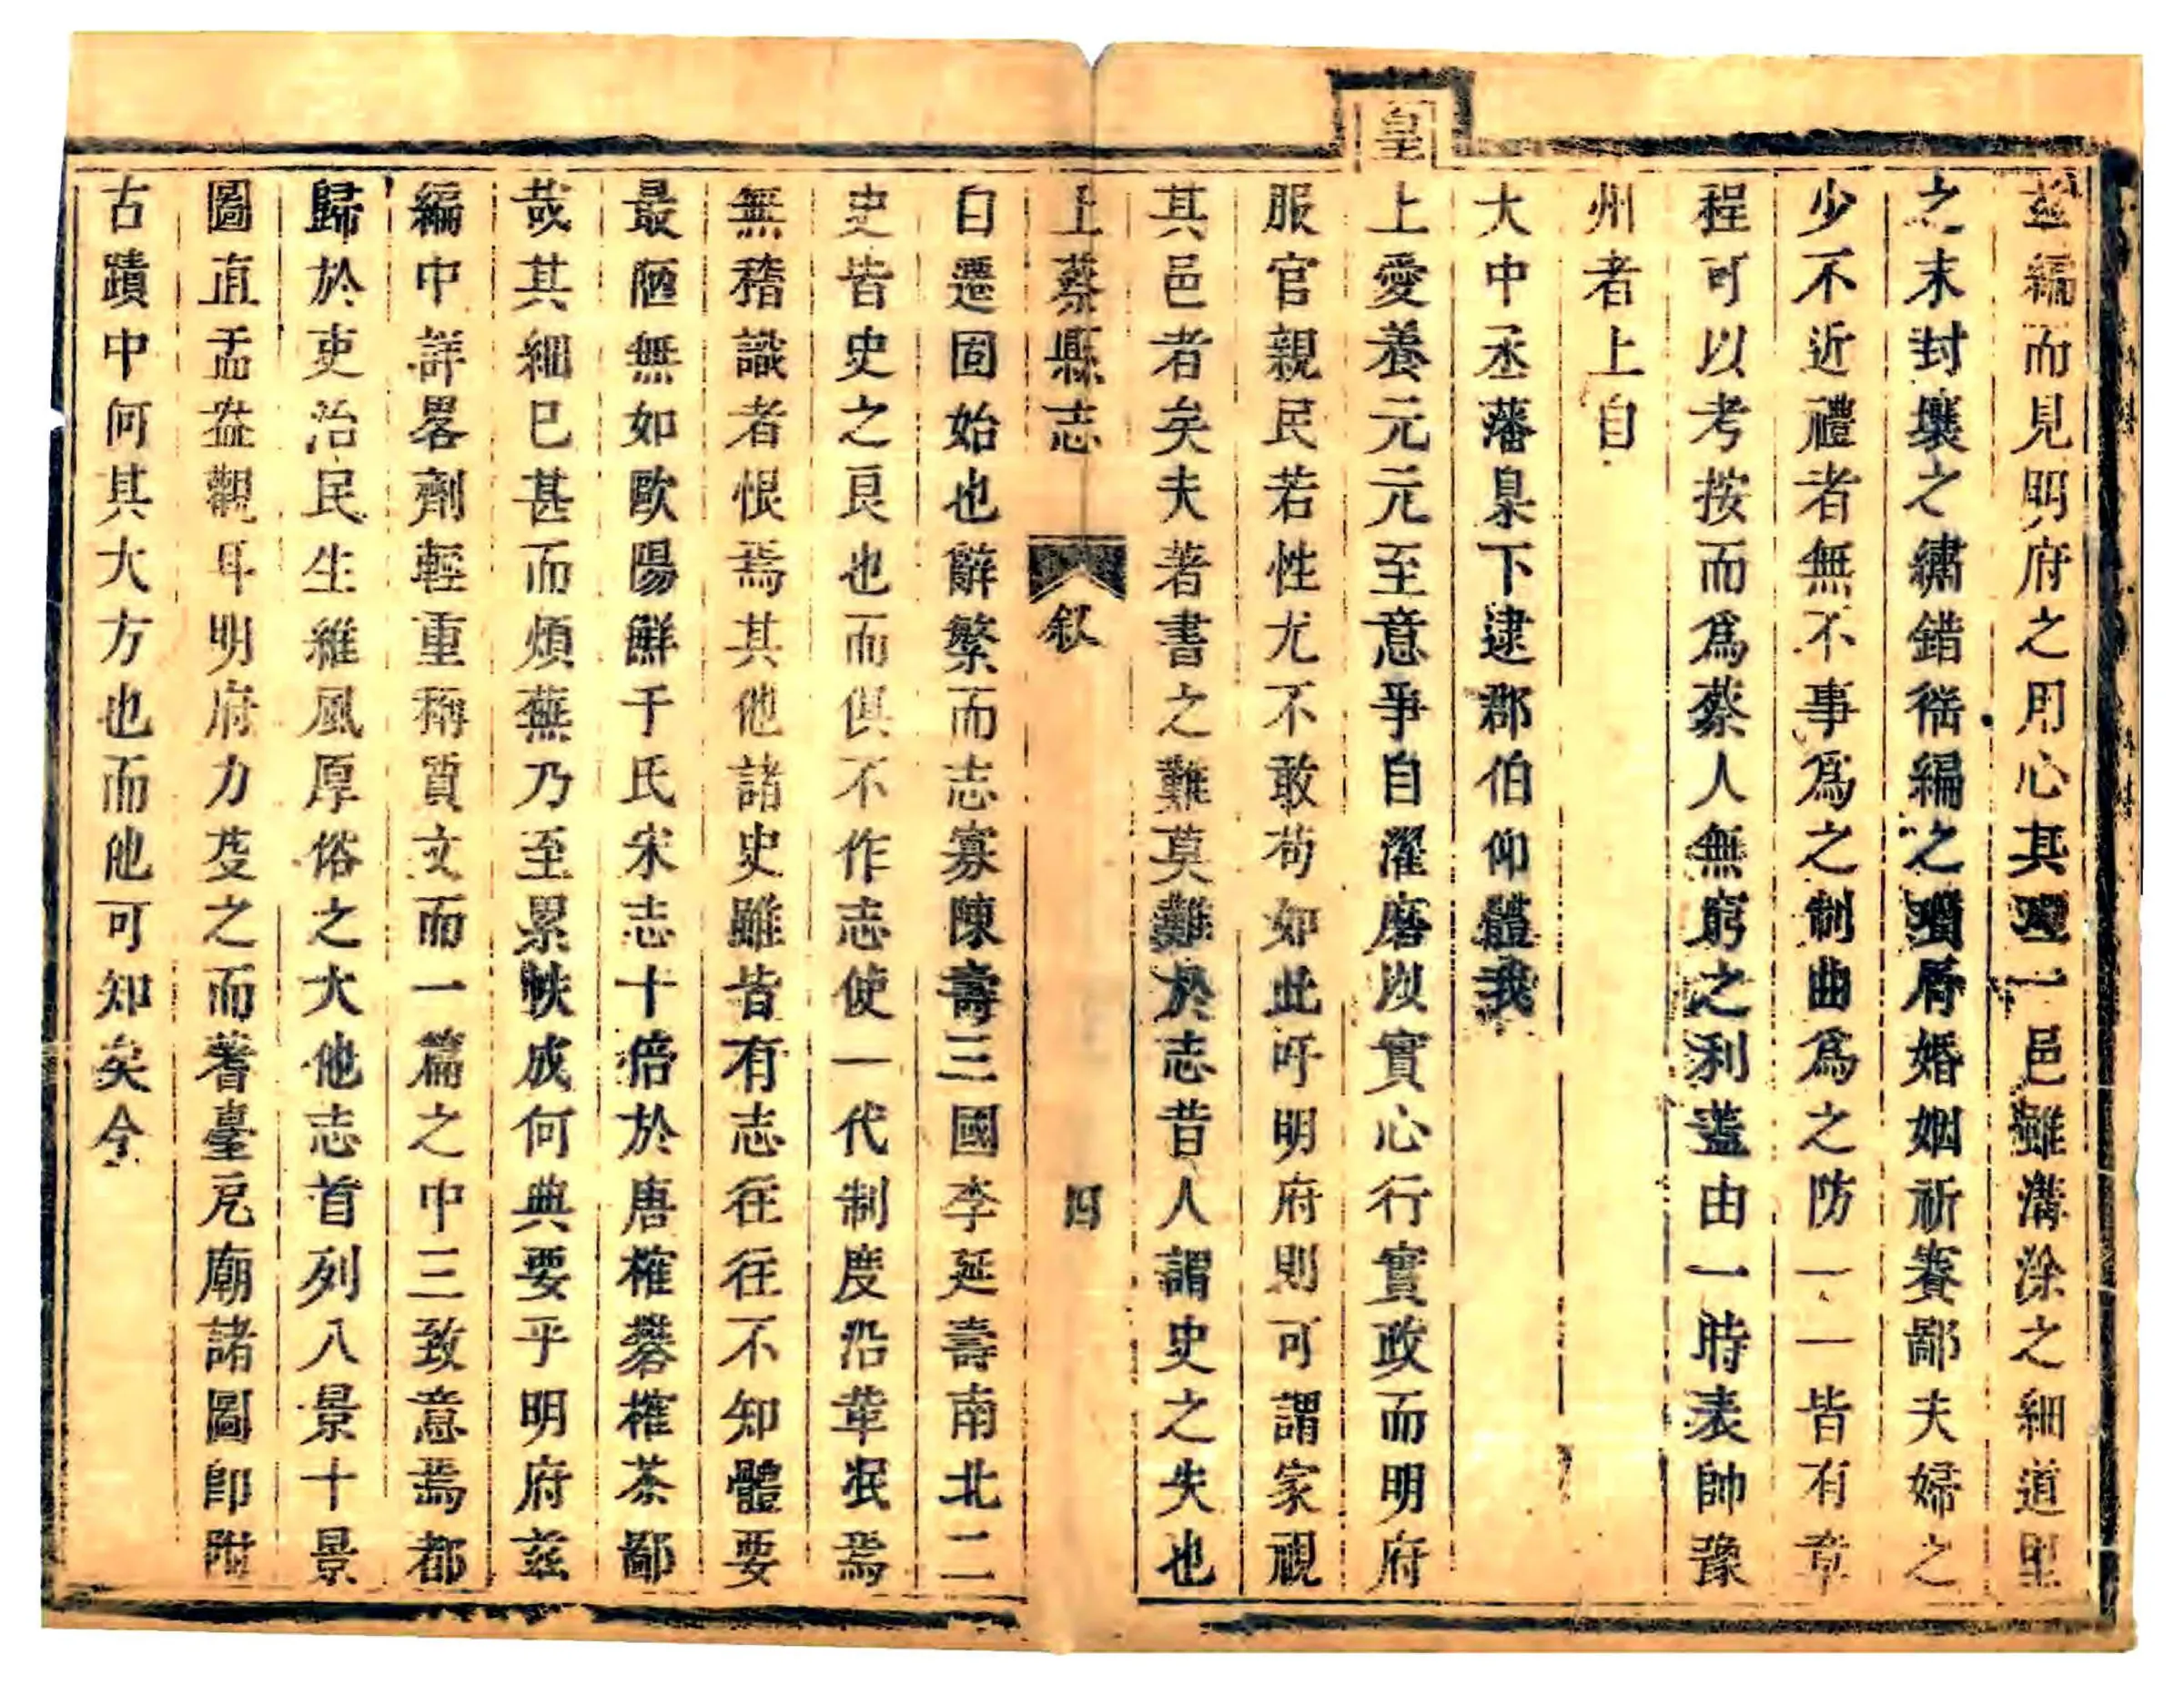 茲編而見明府之用心其理一邑雖溝涂之細道里
之末封壤之繡錯徭編之瑣屑婚姻祈賽鄙夫婦之
少不近禮者無不事爲之制曲爲之防一一皆有章
程可以考按而爲蔡人無窮之利蓋由一時表帥豫
州者上自
大中丞藩臬下逮郡伯仰體我
皇
上愛養元元至意爭自濯磨以實心行實政而明府
服官親民若性尤不敢苟如此吁明府則可謂家視
其邑者矣夫著書之難莫難於志昔人謂史之失也
上蔡縣志 叙 四
自遷固始也辭繁而志寡陳壽三國李延壽南北二
史皆史之良也而俱不作志使一代制度沿革泯焉
無稽識者恨焉其他諸史雖皆有志往往不知體要
最陋無如歐陽鮮于氏宋志十倍於唐榷礬榷茶鄙
哉其細已甚而煩蕪乃至累帙成何典要乎明府茲
編中詳畧劑輕重稱質文而一篇之中三致意焉都
歸於吏治民生維風厚俗之大他志首列八景十景
圖直盂盎觀耳明府力芟之而蓍臺卮廟諸圖卽附
古蹟中何其大方也而他可知矣今